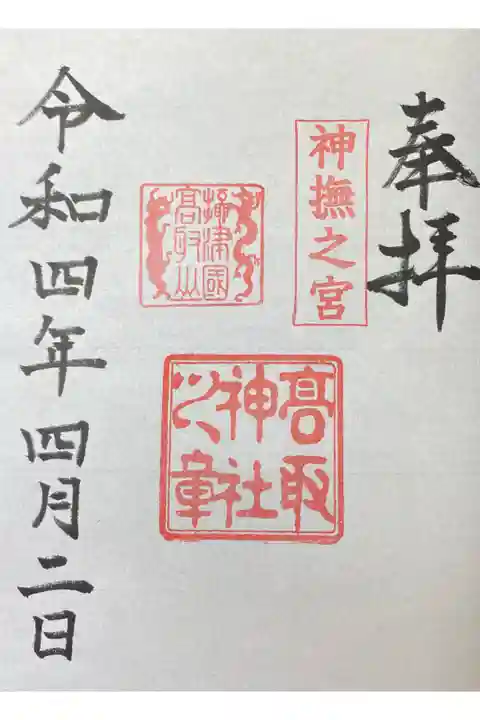 奉拝
神撫之宮
攝津國
高取山
髙取
神社
之章
令和四年四月二日